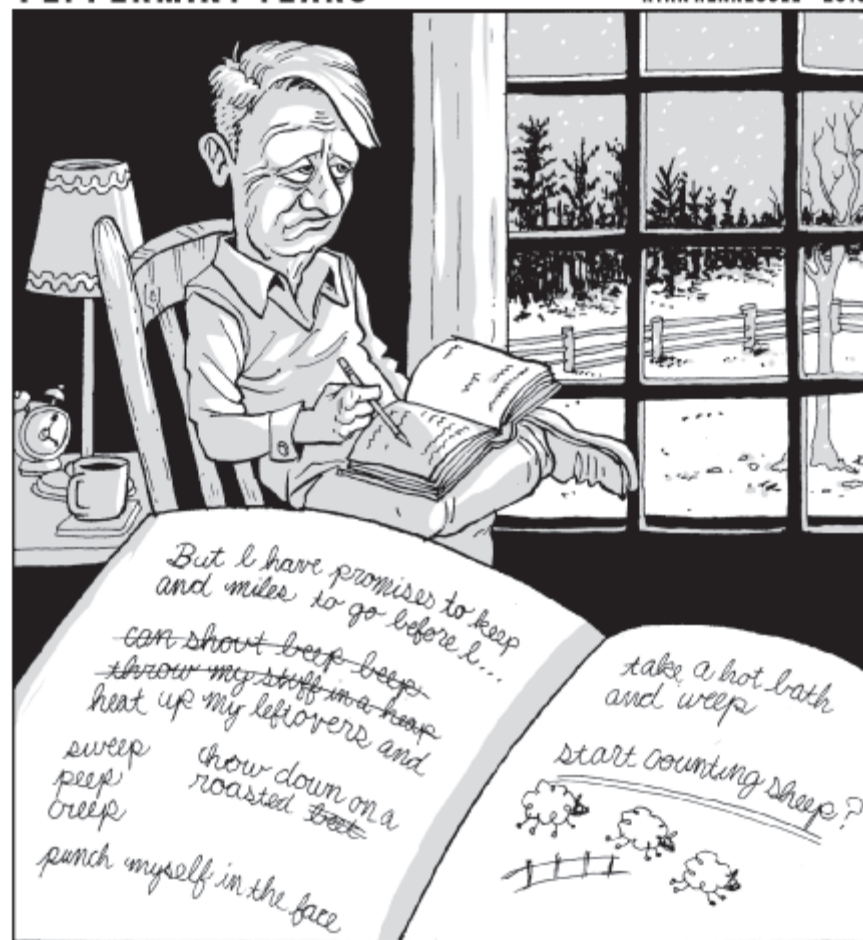 But I have promises to keep
and miles to go before I...
can shout beep beep
throw my stuff in a heap
heat up my leftovers and
sweep
peep
creep
chow down on a
roasted beet
punch myself in the face
take a hot bath
and weep
start counting sheep?